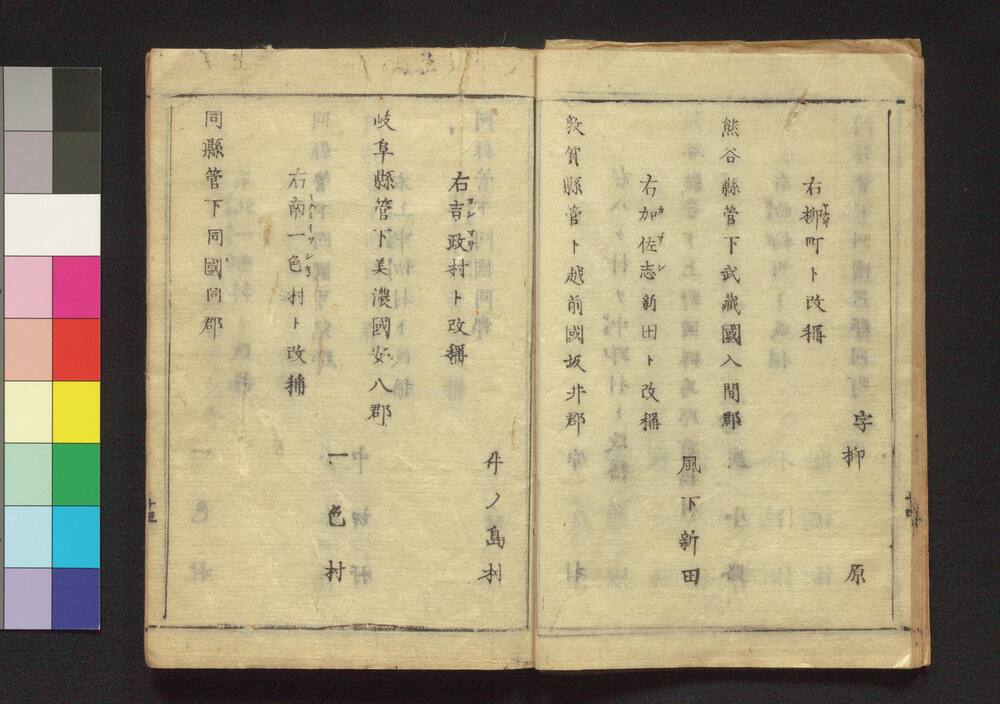 字柳原
右柳町ト改稱
熊谷縣管下武藏國入間郡
風下新田
右加佐志新田ト改稱
カザシ
敦賀縣管下越前國坂井郡
井ノ島村
右吉政村ト改稱
岐阜縣管下美濃國安八郡
一色村
右南一色村ト改稱
同縣管下同國同郡
十四
十五